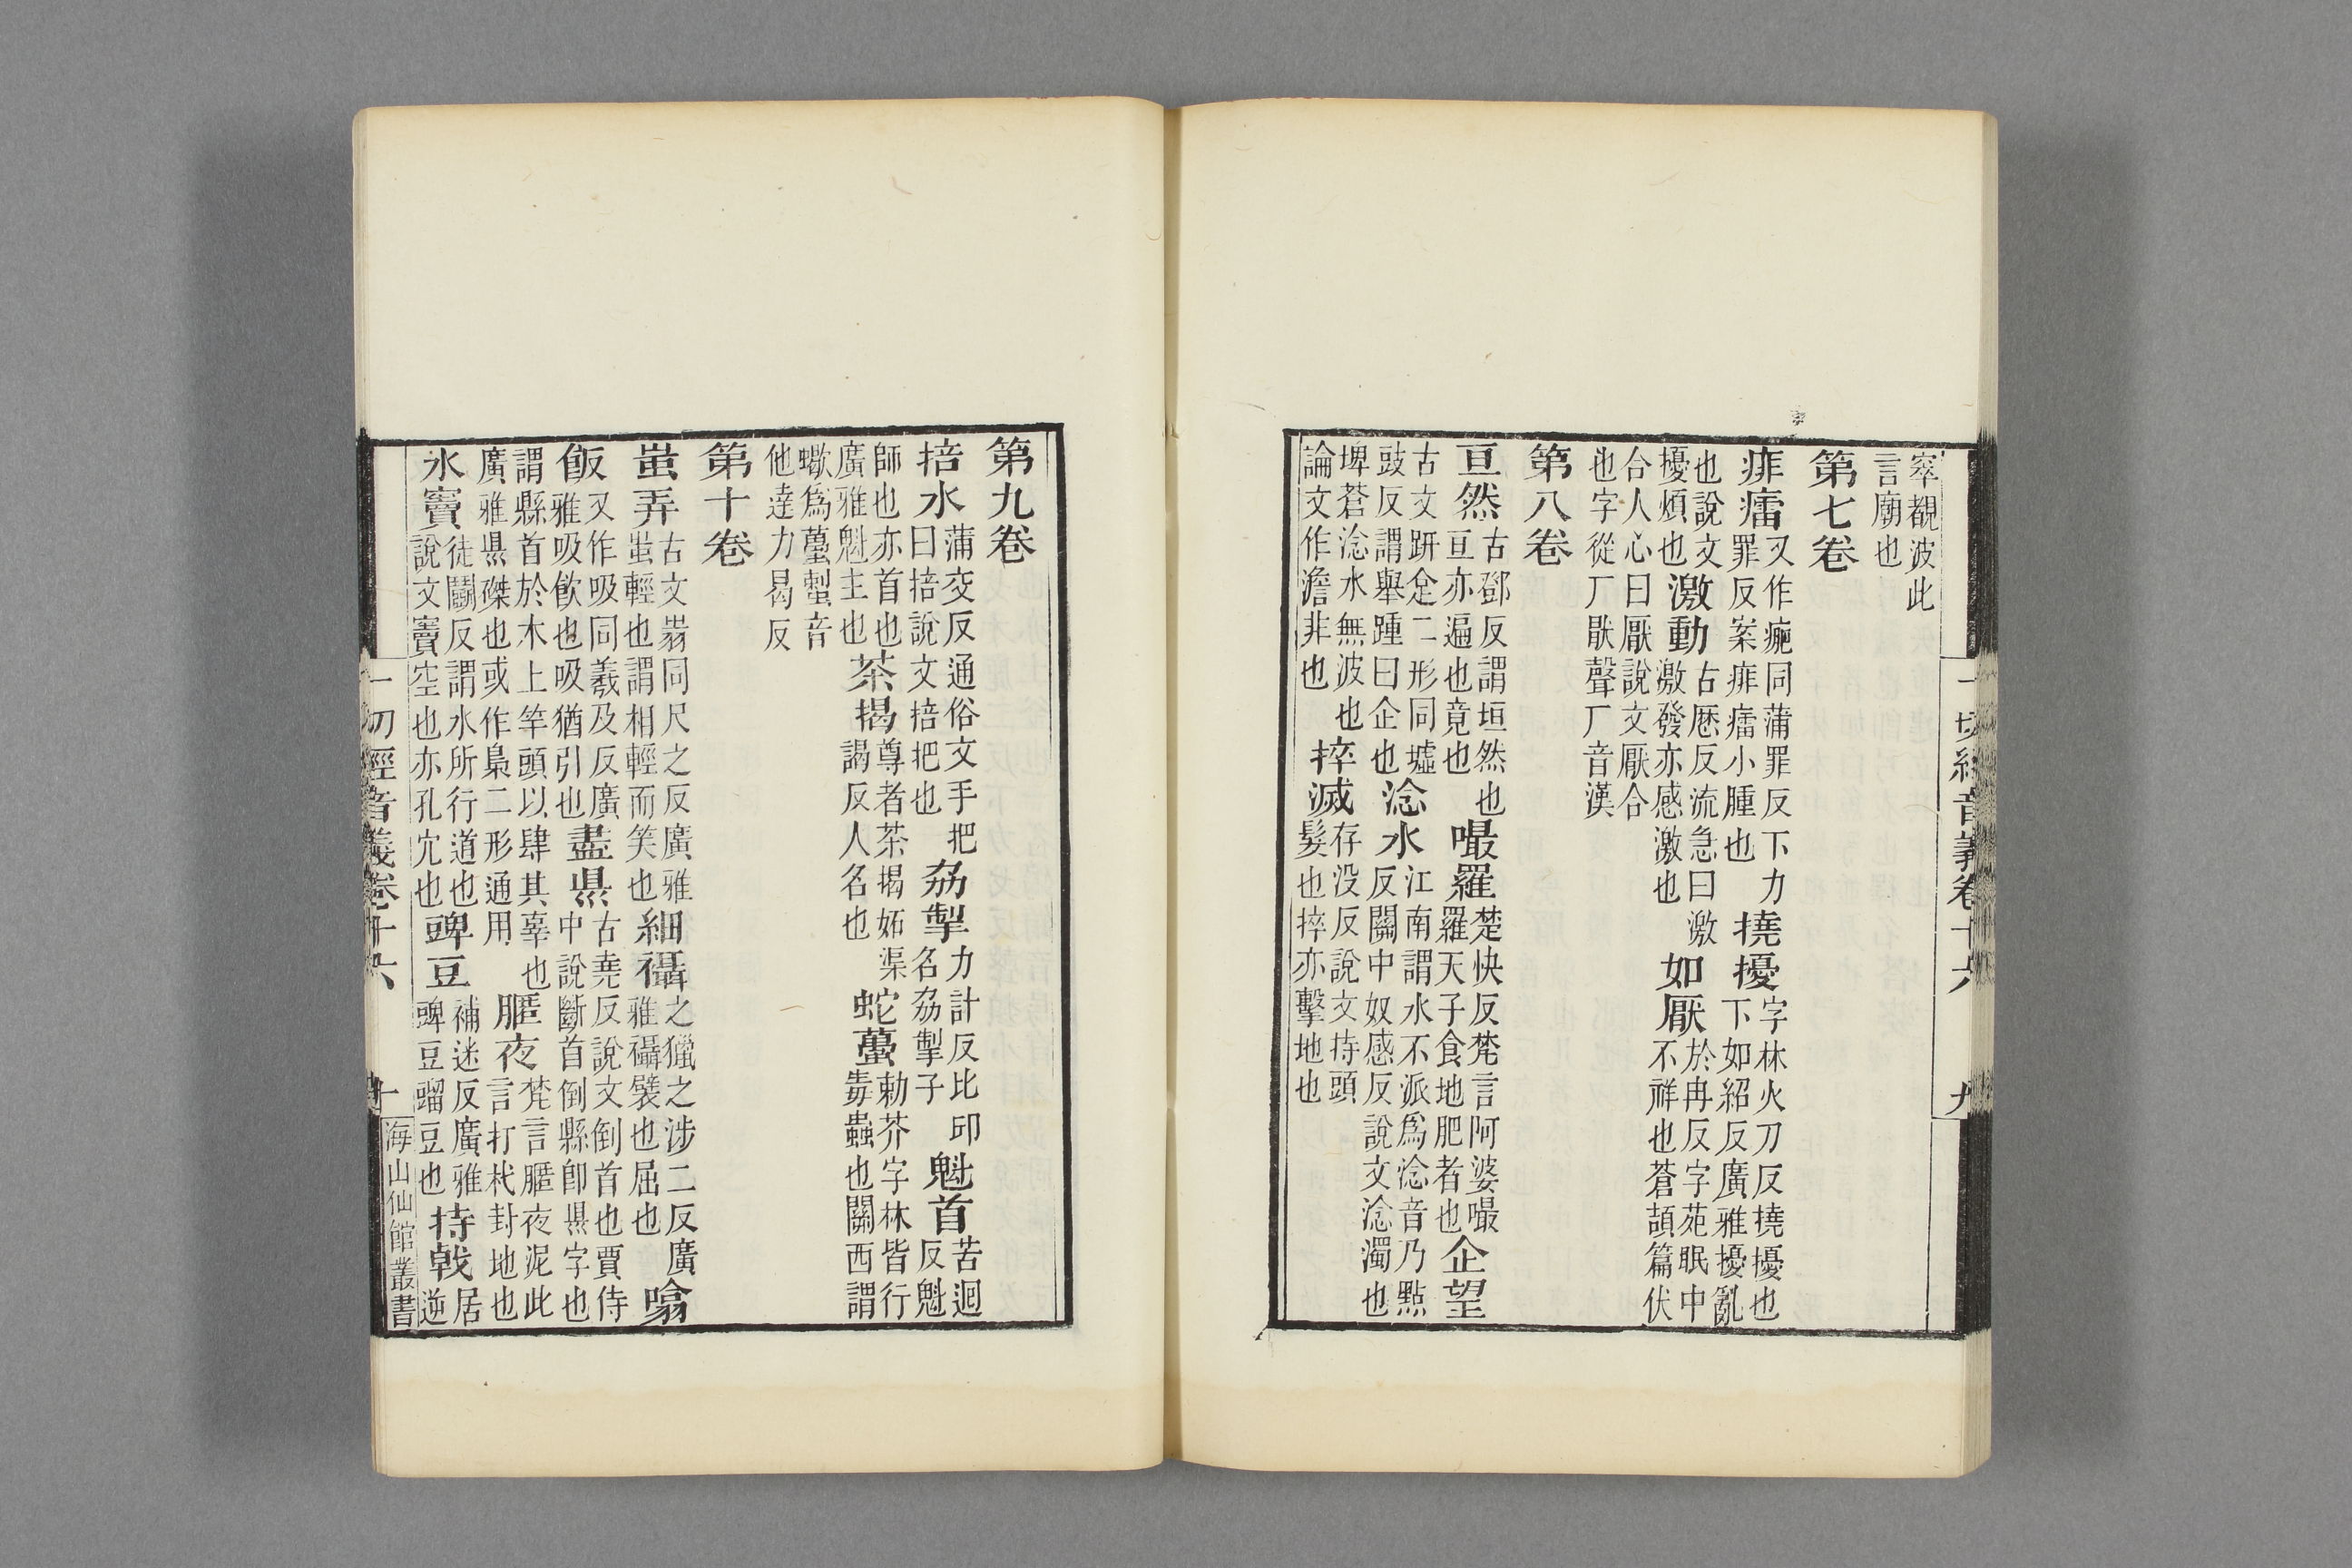 窣覩波此
言廟也
第七卷
痱癗又作㿺同蒲罪反下力罪反案痱癗小腫也撓擾字林火刀反撓擾也下如紹反廣雅擾亂
也說文擾煩也激動古歷反流急曰激激發亦感激也如厭於冉反字苑眠中不祥也蒼頡篇伏
合人心曰厭說文厭合也字從厂猒聲厂音漢
第八卷
亘然古鄧反謂垣然也亘亦遍也竟也嘬羅楚快反梵言阿婆嘬羅天子食地肥者也企望
古文趼𠈮二形同墟豉反謂舉踵曰企也淰水江南謂水不派爲淰音乃點反關中奴感反說文淰濁也
埤蒼淰水無波也論文作澹非也捽滅存没反說文持頭髮也捽亦擊地也
一切經音義卷十六
九
第九卷
掊水蒲交反通俗文手把曰掊說文掊把也劦掣力計反比邱名劦掣子魁首苦迴反魁
師也亦首也廣雅魁主也茶揭尊者茶揭妬渠謁反人名也蛇蠆勅芥字林皆行毒蟲也關西謂
蠍爲蠆𧍪音他達力曷反
第十卷
蚩弄古文同尺之反廣雅蚩輕也謂相輕而笑也細襵之獵之涉二反廣雅襵襞也屈也噏
飯又作吸同羲及反廣雅吸飲也吸猶引也盡県古堯反說文倒首也賈侍中說斷首倒縣卽県字也
謂縣首於木上竿頭以肆其辜也廣雅県磔也或作梟二形通用𦜉夜梵言𦜉夜泥此言打杙封地也
水竇徒鬬反謂水所行道也說文竇空也亦孔穴也豍豆補迷反廣雅豍豆䝀豆也持戟居逆
一切經音義卷十六
十
海山仙館叢書